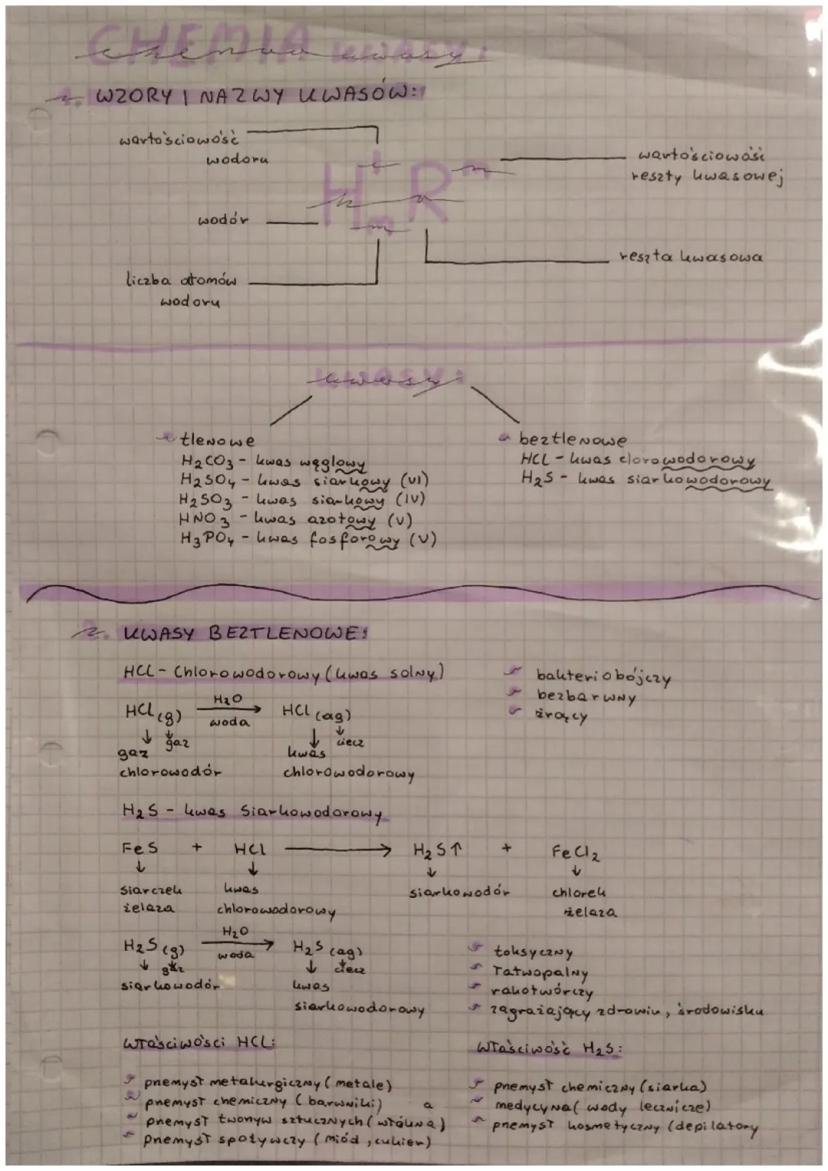 CHEMIA kwasy:
1. WZORY I NAZWY KWASÓW:
wartościowość
wodoru
wartościowość
reszty kwasowej
HᴵₘRᵐ
wodór
reszta kwasowa
liczba atomów
wodoru
kwasy:
tlenowe
H₂CO₃ - kwas węglowy
H₂SO₄ - kwas siarkowy (VI)
H₂SO₃ - kwas siarkowy (IV)
HNO₃ - kwas azotowy (V)
H₃PO₄ - kwas fosforowy (V)
beztlenowe
HCL - kwas clorowodorowy
H₂S - kwas siarkowodorowy
2. KWASY BEZTLENOWE:
HCL - Chlorowodorowy (kwas solny)
bakteriobójczy
bezbarwny
żrący
HCL(g) H₂O woda HCL(ag)
↓ ↓ gaz ↓ ↓ ciecz
gaz kwas
chlorowodór chlorowodorowy
H₂S - kwas Siarkowodorowy
FeS + HCl → H₂S↑ + FeCl₂
↓ ↓ ↓ ↓
siarczek kwas siarkowodór chlorek
żelaza chlorowodorowy żelaza
H₂S(g) H₂O woda H₂S(ag)
↓ gaz ↓ ciecz
siarkowodór kwas
siarkowodorowy
toksyczny
łatwopalny
rakotwórczy
zagrażający zdrowiu, środowisku
właściwości HCL:
przemysł metalurgiczny (metale)
przemysł chemiczny (barwniki) a
przemysł tworzyw sztucznych (włókna)
przemysł spożywczy (miód, cukier)
Właściwość H₂S:
przemysł chemiczny (siarka)
medycyna (wody lecznicze)
przemysł kosmetyczny (depilatory